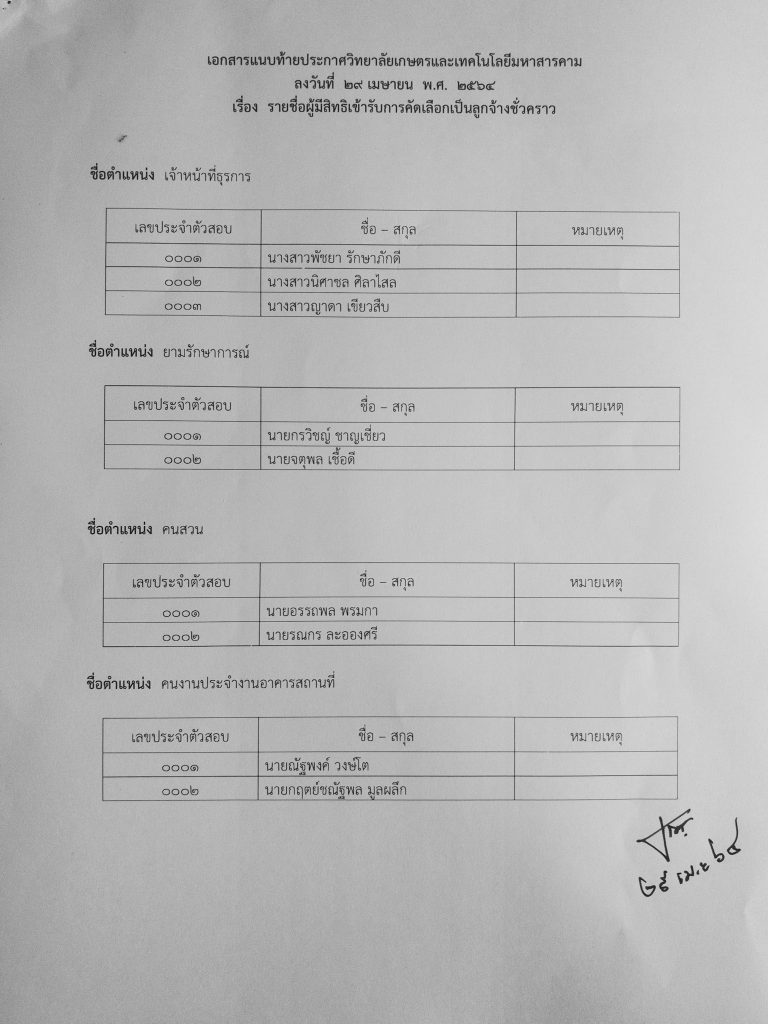 เอกสารแนบท้ายประกาศวิทยาลัยเกษตรและเทคโนโลยีมหาสารคาม
ลงวันที่ ๒๙ เมษายน พ.ศ. ๒๕๖๔
เรื่อง รายชื่อผู้มีสิทธิเข้ารับการคัดเลือกเป็นลูกจ้างชั่วคราว
ชื่อตำแหน่ง เจ้าหน้าที่ธุรการ
เลขประจำตัวสอบ ชื่อ – สกุล หมายเหตุ
๐๐๐๑ นางสาวพัชยา รักษาภักดี
๐๐๐๒ นางสาวนิศาชล ศิลาไสล
๐๐๐๓ นางสาวญาดา เขียวสืบ
ชื่อตำแหน่ง ยามรักษาการณ์
เลขประจำตัวสอบ ชื่อ – สกุล หมายเหตุ
๐๐๐๑ นายกรวิชญ์ ชาญเชี่ยว
๐๐๐๒ นายจตุพล เชื้อดี
ชื่อตำแหน่ง คนสวน
เลขประจำตัวสอบ ชื่อ – สกุล หมายเหตุ
๐๐๐๑ นายอรรถพล พรมกา
๐๐๐๒ นายรณกร ละอองศรี
ชื่อตำแหน่ง คนงานประจำงานอาคารสถานที่
เลขประจำตัวสอบ ชื่อ – สกุล หมายเหตุ
๐๐๐๑ นายณัฐพงค์ วงษ์โต
๐๐๐๒ นายกฤตย์ชณัฐพล มูลผลึก
๒๙ เม.ย ๖๔